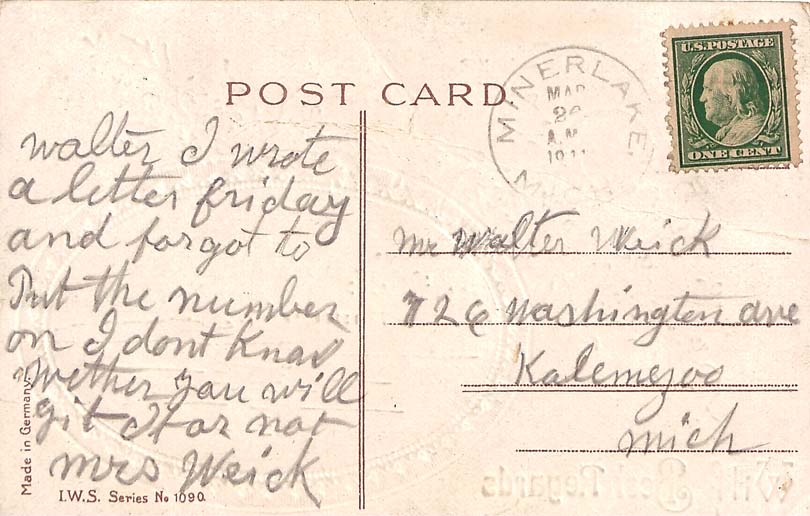 POST CARD
MINERLAKE
MICH
MAR
26
A.M.
1911
U.S. POSTAGE
ONE CENT
walter I wrote
a letter friday
and forgot to
Put the number
on I dont Know
wether you will
git It or not
mrs Weick
mr Walter Weick
726 Washington ave
Kalemezoo
mich
Made in Germany.
I.W.S. Series No 1090
With Best Regards